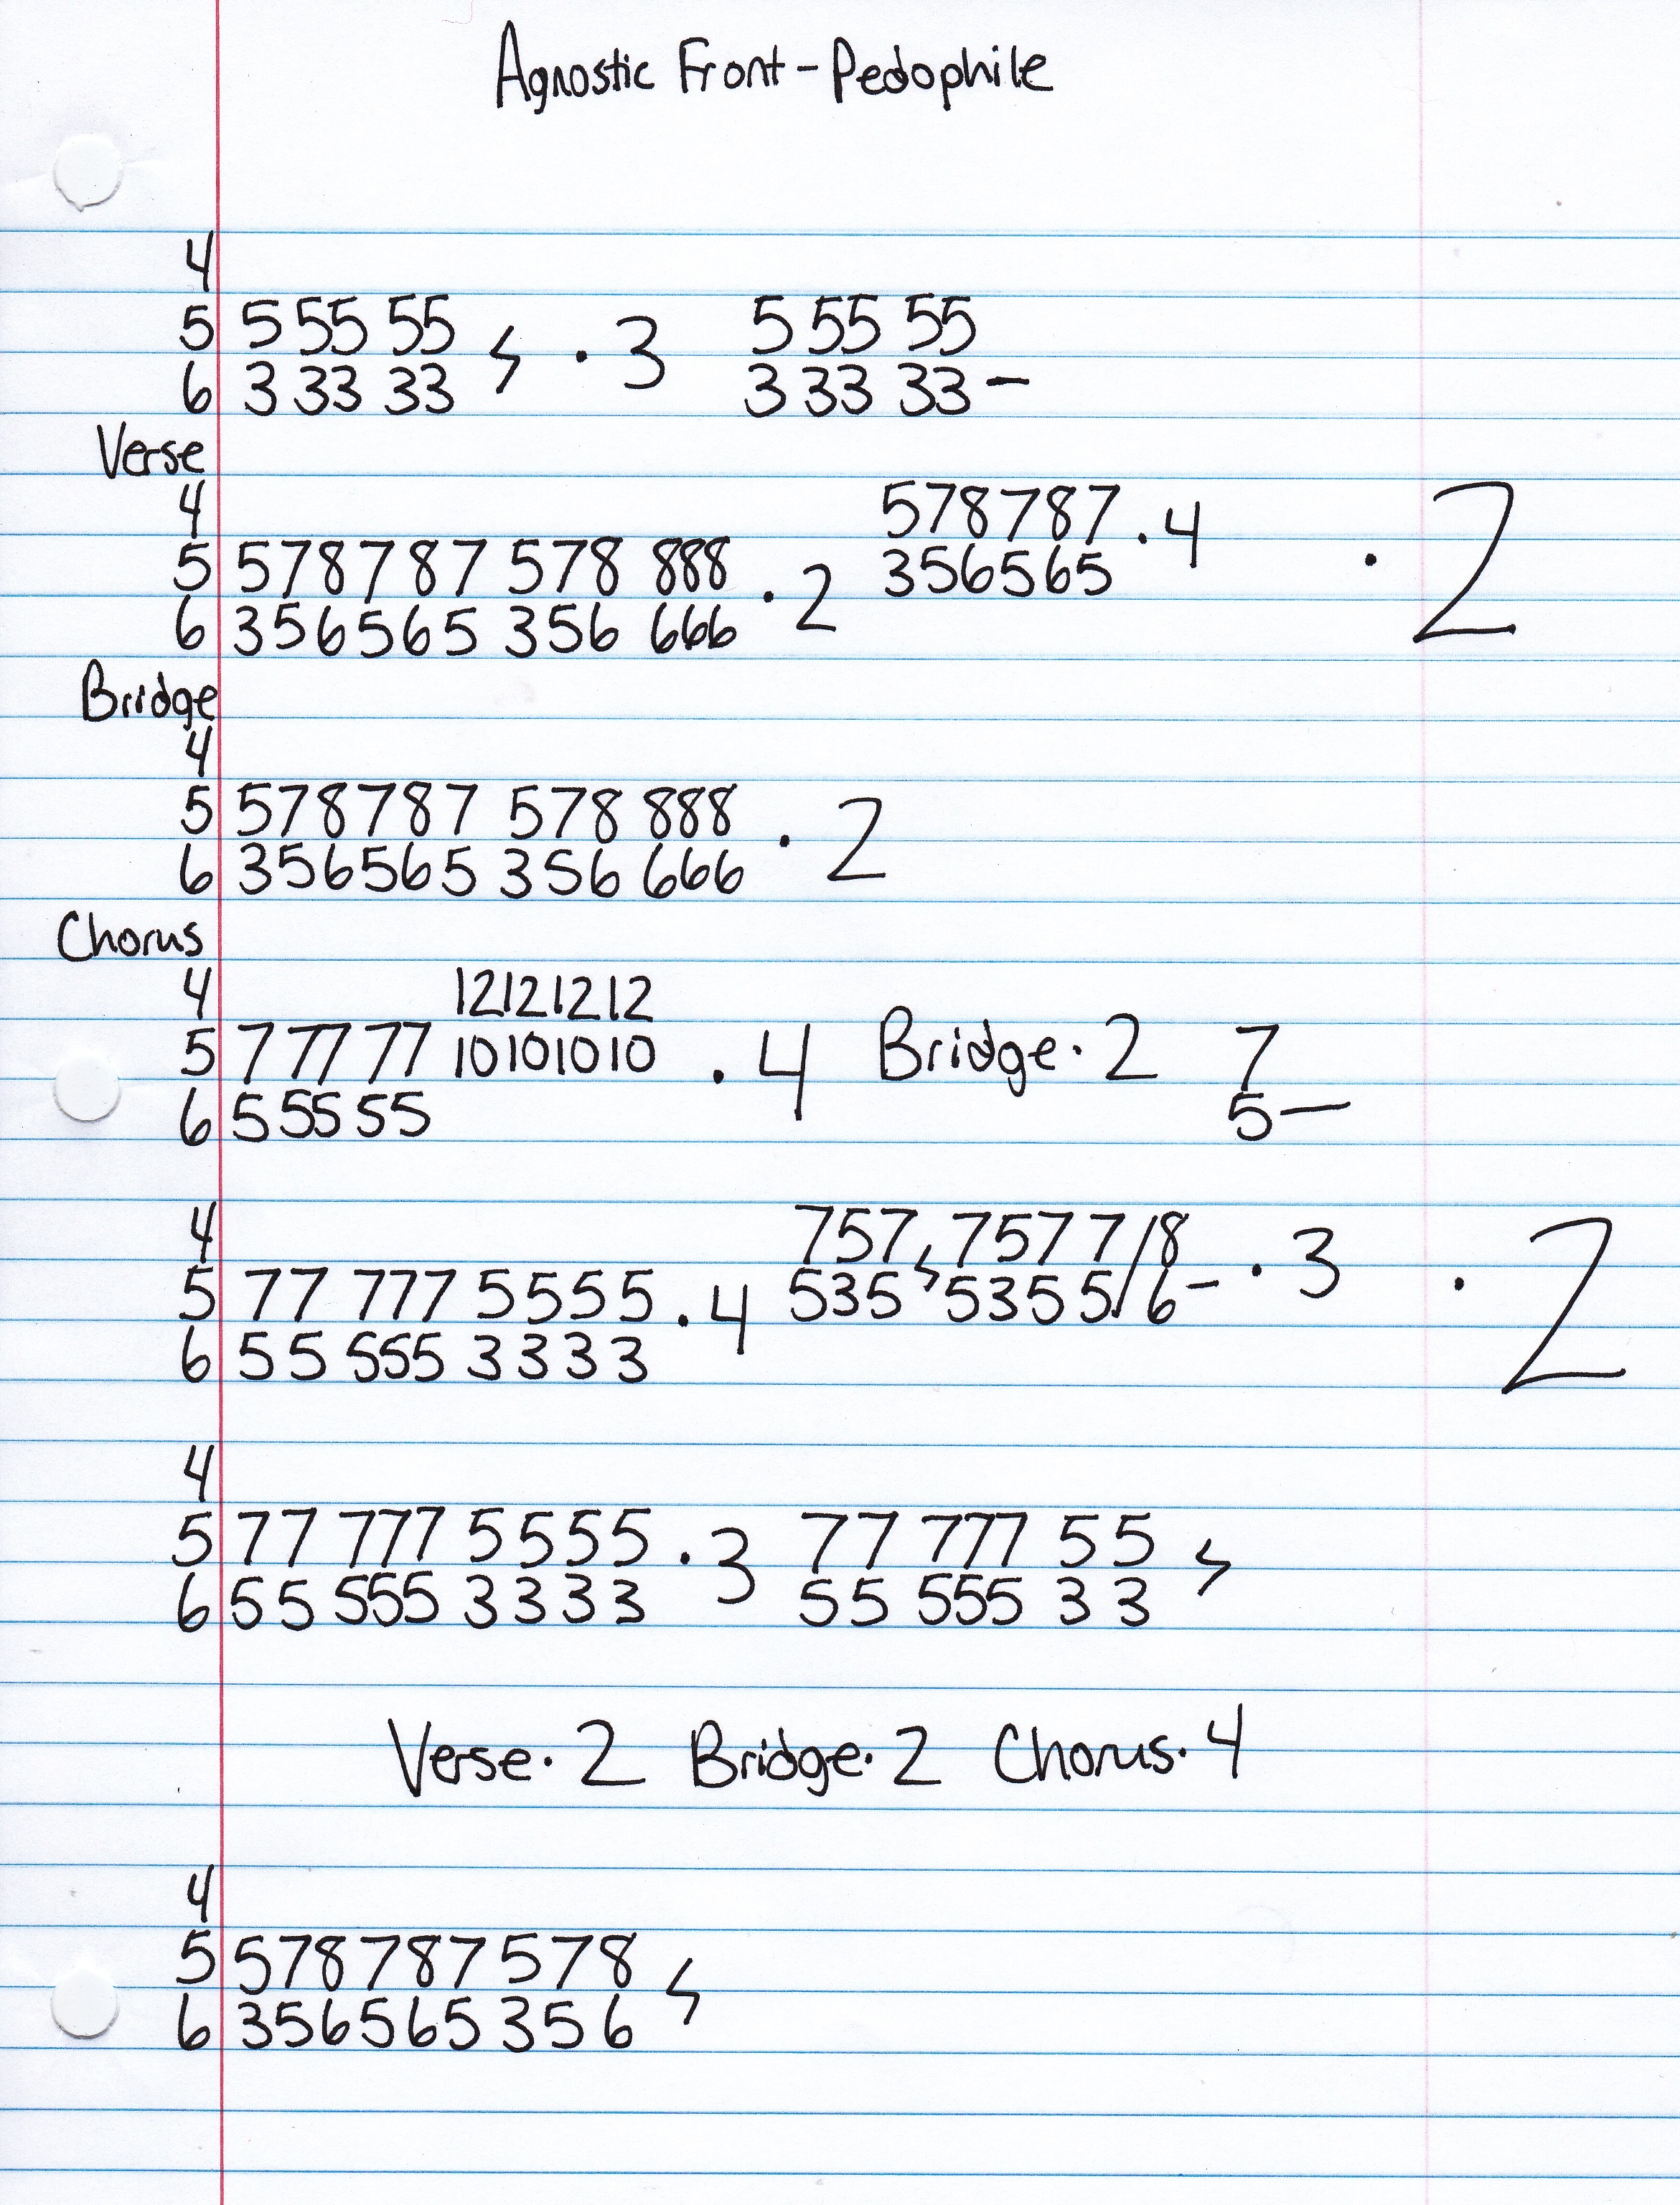 Agnostic Front - Pedophile
4
5 5 55 55 5 55 55
6 3 33 33 𝄽 · 3 3 33 33 -
Verse
4 578787 · 4
5 578787 578 888 356565 · 2
6 356565 356 666 · 2
Bridge
4
5 578787 578 888
6 356565 356 666 · 2
Chorus
4 12121212
5 7 77 77 10101010 · 4 Bridge · 2 7
6 5 55 55 5 -
4 757 , 757 7/8
5 77 777 5555 · 4 535 535 5/6 - · 3 · 2
6 55 555 3333
4
5 77 777 5555 · 3 77 777 55
6 55 555 3333 55 555 33 𝄽
Verse · 2 Bridge · 2 Chorus · 4
4
5 578787578
6 356565356 𝄽